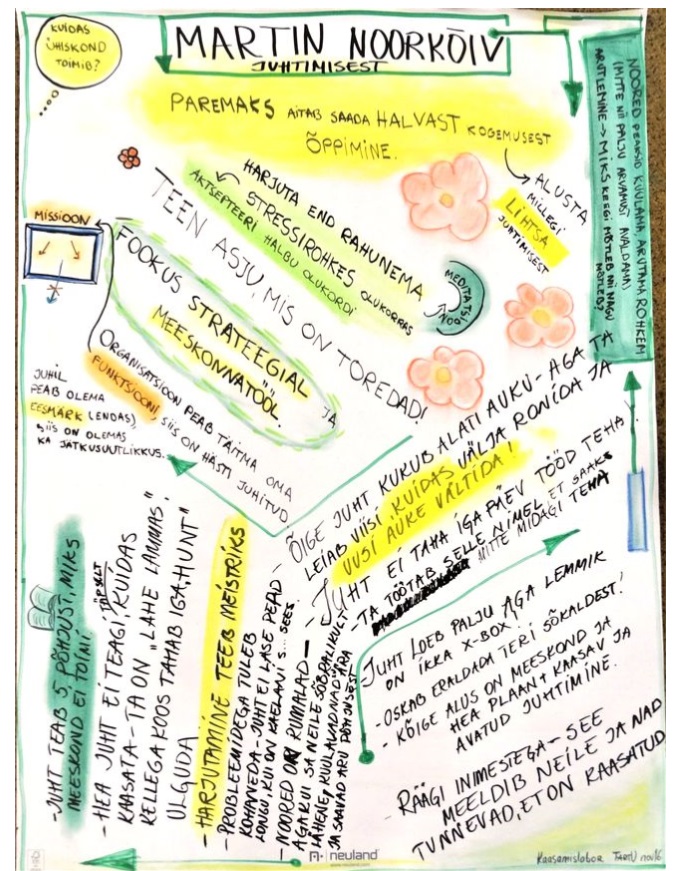 KUIDAS
ÜHISKOND
TOIMIB?
MARTIN NOORKÕIV
JUHTIMISEST
PAREMAKS AITAB SAADA HALVAST KOGEMUSEST
ÕPPIMINE.
ALUSTA
MILLEGI
LIHTSA
JUHTIMISEST
NOORED PEAKSID KUULAMA, ARUTAMA ROHKEM
(MITTE NII PALJU ARVAMUST AVALDAMA)
ARUTLEMINE → MIKS KEEGI MÕTLEB NII NAGU
MÕTLEB?
HARJUTA END RAHUNEMA
STRESSIROHKES OLUKORRAS
AKTSEPTEERI HALBU OLUKORDI
MEDITATSIOON
TEEN ASJU, MIS ON TOREDAD!
MISSIOON
FOOKUS STRATEEGIAL
JA
MEESKONNATÖÖL.
ORGANISATSIOON PEAB TÄITMA OMA
FUNKTSIOONI, SIIS ON HÄSTI JUHITUD.
JUHIL
PEAB OLEMA
EESMÄRK (LENDAS),
SIIS ON OLEMAS
KA JÄTKUSUUTLIKKUS.
- ÕIGE JUHT KUKUB ALATI AUKU - AGA TA
LEIAB VIISI, KUIDAS VÄLJA RONIDA JA
UUSI AUKE VÄLTIDA!
- JUHT EI TAHA IGA PÄEV TÖÖD TEHA
- TA TÖÖTAB SELLE NIMEL ET SAAKS
MITTE MIDAGI TEHA
- JUHT TEAB 5 PÕHJUST, MIKS
MEESKOND EI TOIMI
- HEA JUHT EI TEAGI TÄPSELT, KUIDAS
KAASATA - TA ON "LAHE LAMMAS",
KELLEGA KOOS TAHAB IGA "HUNT"
ULGUDA
- HARJUTAMINE TEEB MEISTRIKS
- PROBLEEMIDEGA TULEB
KOHANEDA - JUHT EI LASE PEAD
LONGU, KUI ON KAELANI S... SEES.
- NOORED ON RUMALAD -
AGA KUI SA NEILE SÕBRALIKULT
LÄHENED, KUULAVAD NAD ÄRA
JA SAAVAD ARU PÕHJUSEST
- JUHT LOEB PALJU AGA LEMMIK
ON IKKA X-BOX!
- OSKAB ERALDADA TERI SÕKALDEST!
- KÕIGE ALUS ON MEESKOND JA
HEA PLAAN + KAASAV JA
AVATUD JUHTIMINE.
- RÄÄGI INIMESTEGA - SEE
MEELDIB NEILE JA NAD
TUNNEVAD, ET ON KAASATUD
neuland
Kaasamislabor TARTU nov16